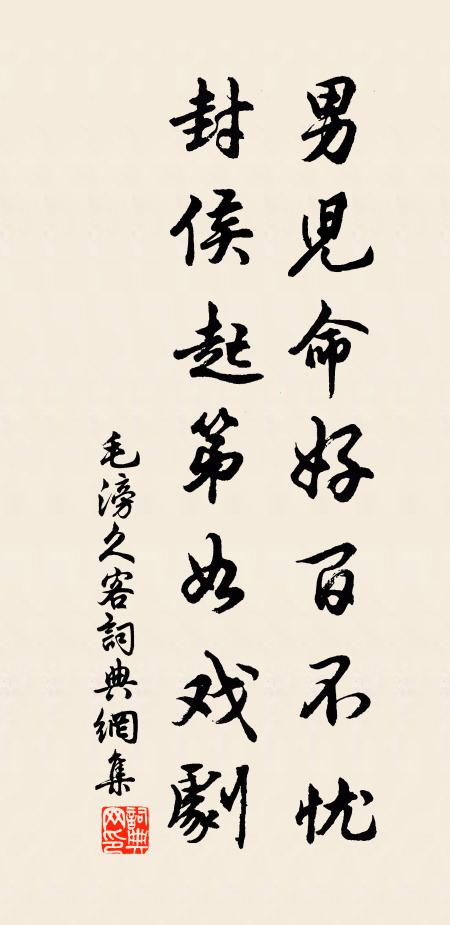 男児命好百不忧
封侯起第如戏劇
毛滂久客詞典網集
詞典網印